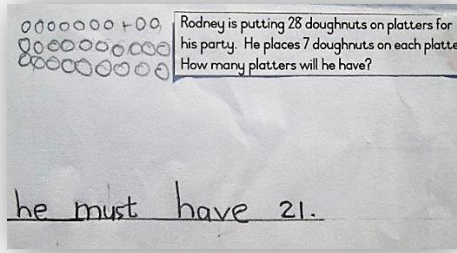 Rodney is putting 28 doughnuts on platters for
his party. He places 7 doughnuts on each platte
How many platters will he have?
he must have 21.